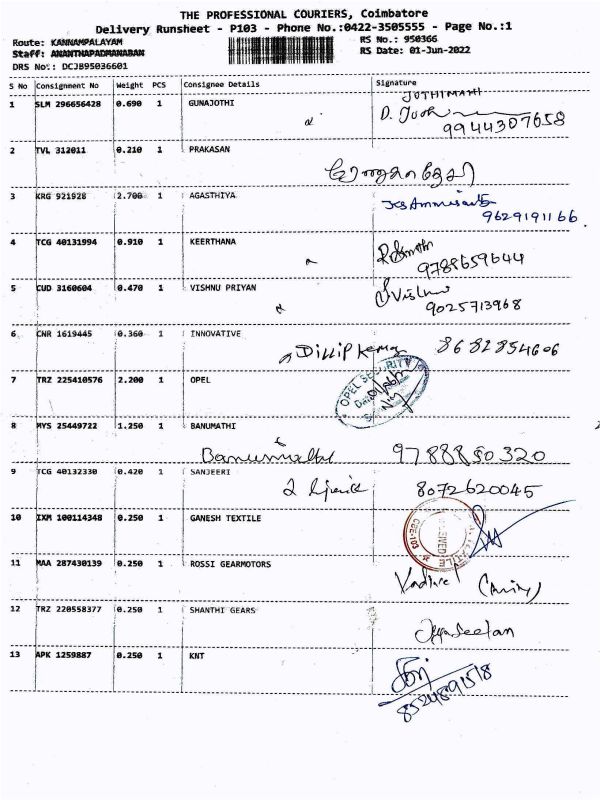 THE PROFESSIONAL COURIERS, Coimbatore
Delivery Runsheet - P103 - Phone No.:0422-3505555 - Page No.:1
Route: KANNAMPALAYAM RS No.: 950366
Staff: ANANTHAPADMANABAN RS Date: 01-Jun-2022
DRS No: DCJB95036601
S No Consignment No Weight PCS Consignee Details Signature
JOTHIMANI
1 SLM 296656428 0.690 1 GUNAJOTHI
9944307658
2 TVL 312011 0.210 1 PRAKASAN
3 KRG 921928 2.700 1 AGASTHIYA
9629191166
4 TCG 40131994 0.910 1 KEERTHANA
9788659644
5 CUD 3160604 0.470 1 VISHNU PRIYAN
Vishnu
9025713968
6 CNR 1619445 0.360 1 INNOVATIVE
Dillip Kumar 8682854606
OPEL SECURITY
7 TRZ 225410576 2.200 1 OPEL
8 MYS 25449722 1.250 1 BANUMATHI
Banumathi 9788850320
9 TCG 40132330 0.420 1 SANJEERI
8072620045
10 IXM 100114348 0.250 1 GANESH TEXTILE
11 MAA 287430139 0.250 1 ROSSI GEARMOTORS
12 TRZ 220558377 0.250 1 SHANTHI GEARS
Jayaseelan
13 APK 1259887 0.250 1 KNT